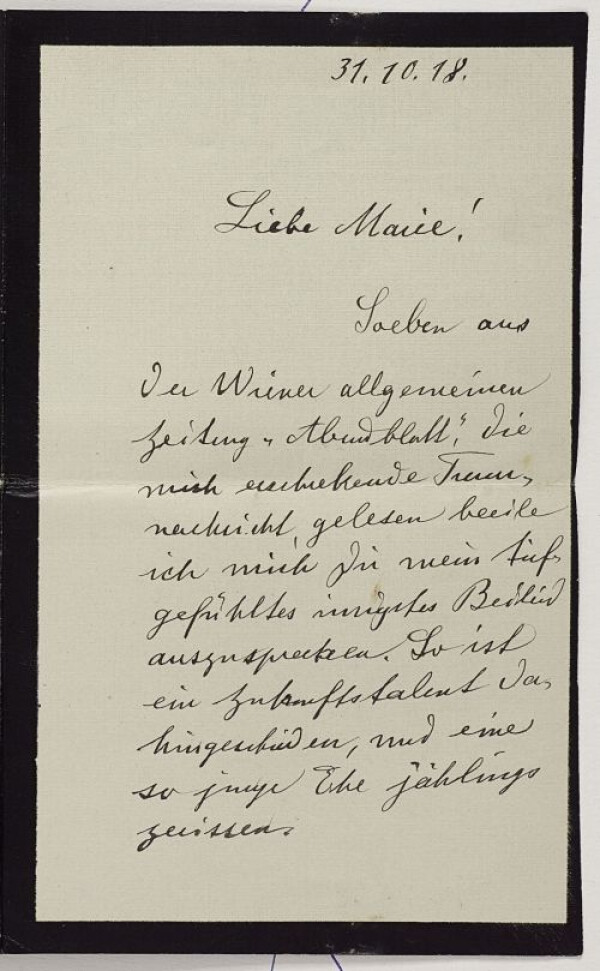 31.10.18.
Liebe Marie!
Soeben aus
der Wiener allgemeinen
Zeitung „Abendblatt“, die
mich erschrekende Trauer-
nachricht, gelesen beeile
ich mich Dir mein tief-
gefühltes innigstes Beileid
auszusprechen. So ist
ein Zukunftstalent da-
hingeschieden, und eine
so junge Ehe jählings
zerissen.